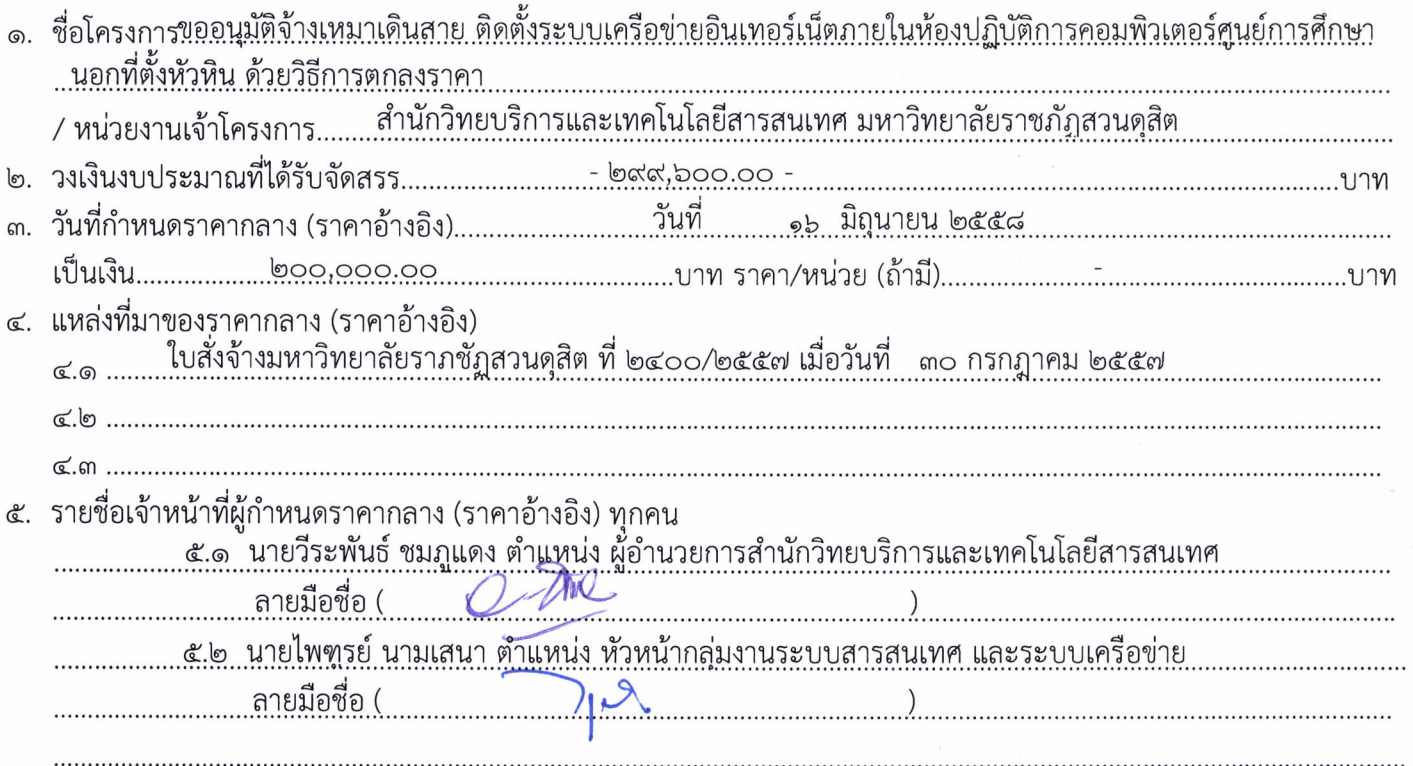 ๑. ชื่อโครงการขออนุมัติจ้างเหมาเดินสาย ติดตั้งระบบเครือข่ายอินเทอร์เน็ตภายในห้องปฏิบัติการคอมพิวเตอร์ศูนย์การศึกษา
นอกที่ตั้งหัวหิน ด้วยวิธีการตกลงราคา
/ หน่วยงานเจ้าโครงการ.........สำนักวิทยบริการและเทคโนโลยีสารสนเทศ มหาวิทยาลัยราชภัฏสวนดุสิต
๒. วงเงินงบประมาณที่ได้รับจัดสรร.........- ๒๙๙,๖๐๐.๐๐ -.........บาท
๓. วันที่กำหนดราคากลาง (ราคาอ้างอิง).........วันที่ ๑๖ มิถุนายน ๒๕๕๘
เป็นเงิน.........๒๐๐,๐๐๐.๐๐.........บาท ราคา/หน่วย (ถ้ามี).........-.........บาท
๔. แหล่งที่มาของราคากลาง (ราคาอ้างอิง)
๔.๑ ใบสั่งจ้างมหาวิทยาลัยราภชัฏสวนดุสิต ที่ ๒๔๐๐/๒๕๕๗ เมื่อวันที่ ๓๐ กรกฎาคม ๒๕๕๗
๔.๒ .........
๔.๓ .........
๕. รายชื่อเจ้าหน้าที่ผู้กำหนดราคากลาง (ราคาอ้างอิง) ทุกคน
๕.๑ นายวีระพันธ์ ชมภูแดง ตำแหน่ง ผู้อำนวยการสำนักวิทยบริการและเทคโนโลยีสารสนเทศ
ลายมือชื่อ ( )
๕.๒ นายไพฑูรย์ นามเสนา ตำแหน่ง หัวหน้ากลุ่มงานระบบสารสนเทศ และระบบเครือข่าย
ลายมือชื่อ ( )